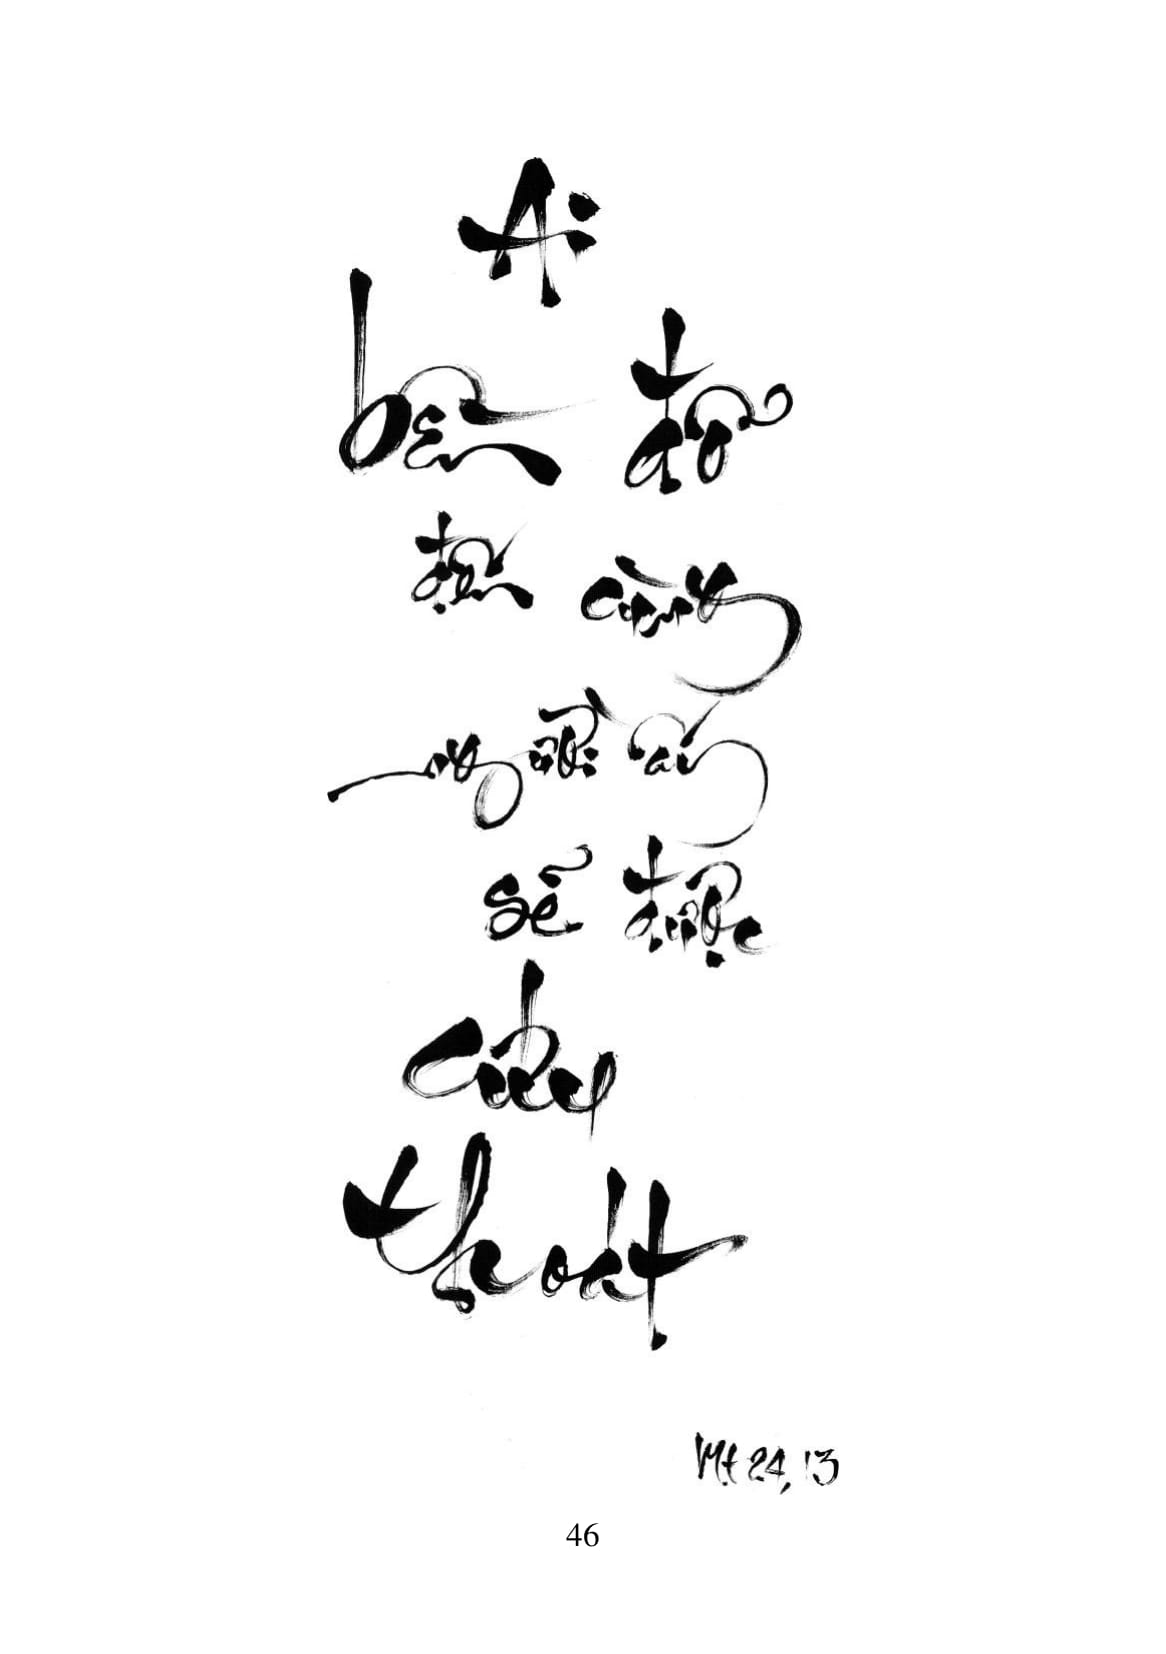 Ai
bền đỗ
đến cùng
người ấy
sẽ được
cứu
thoát
Mt 24, 13
46